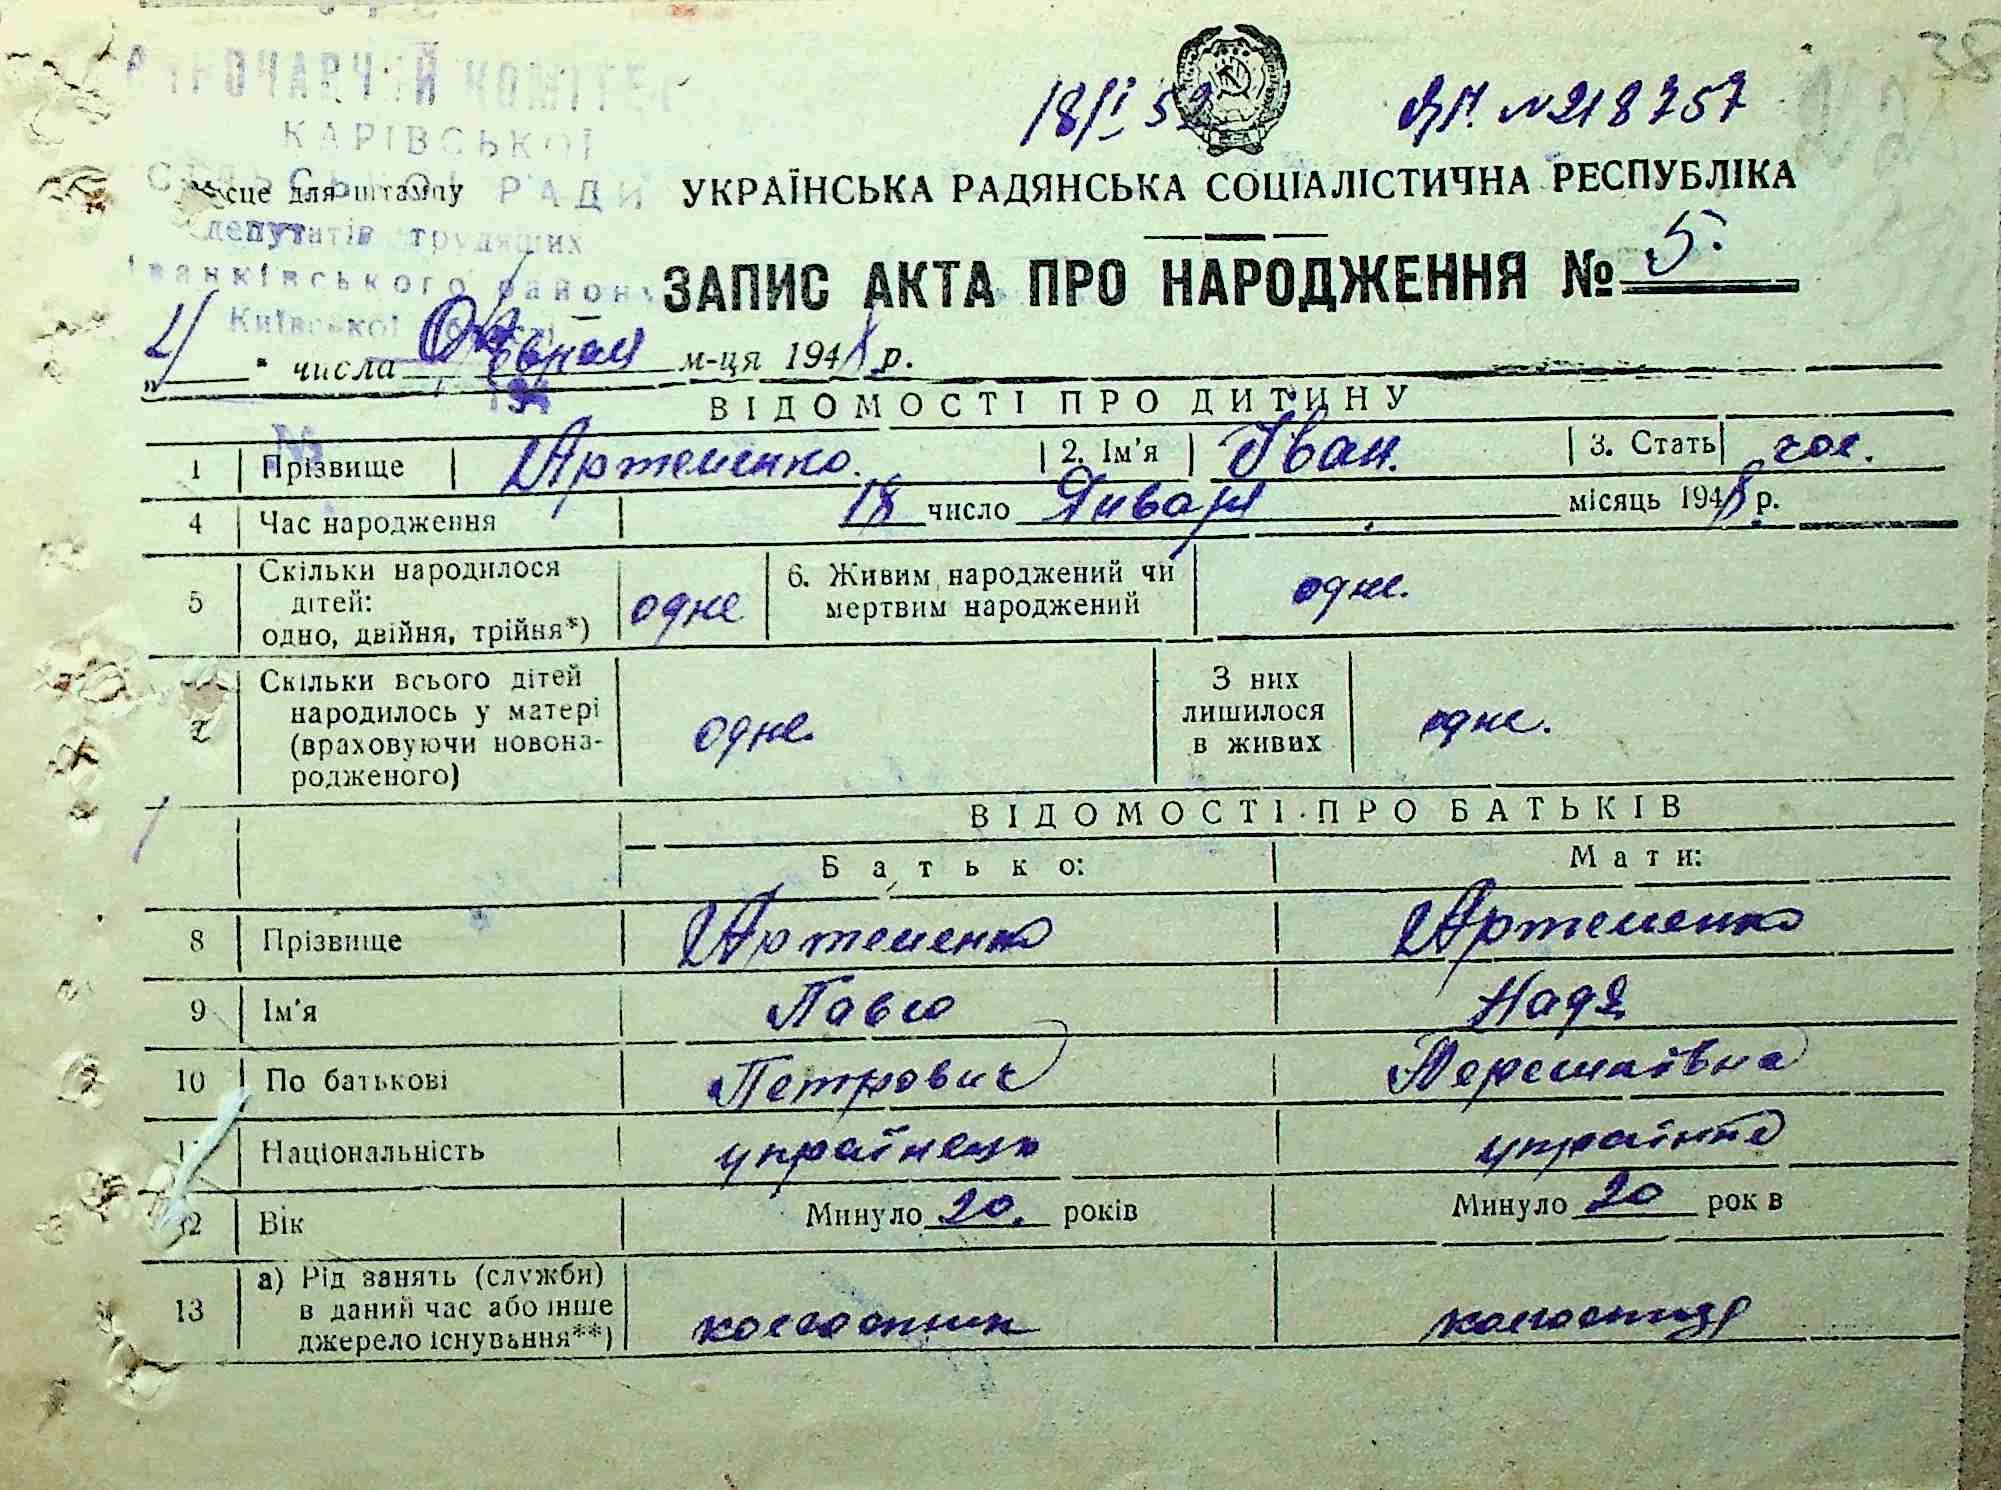 38
18/I 52 ЯН. №218757
ВИКОНАВЧИЙ КОМІТЕТ
КАРІВСЬКОЇ
СІЛЬСЬКОЇ РАДИ
депутатів трудящих
Іванківського району
Київської області
194
№
Місце для штампу
УКРАЇНСЬКА РАДЯНСЬКА СОЦІАЛІСТИЧНА РЕСПУБЛІКА
ЗАПИС АКТА ПРО НАРОДЖЕННЯ № 5.
„4" числа Февраля м-ця 1948 р.
ВІДОМОСТІ ПРО ДИТИНУ
1 Прізвище Артеменко. 2. Ім'я Іван. 3. Стать чол.
4 Час народження 18 число Января місяць 1948 р.
5 Скільки народилося дітей: одно, двійня, трійня*) одне 6. Живим народжений чи мертвим народжений одне.
7 Скільки всього дітей народилось у матері (враховуючи новонародженого) одне. З них лишилося в живих одне.
ВІДОМОСТІ ПРО БАТЬКІВ
Батько: Мати:
8 Прізвище Артеменко Артеменко
9 Ім'я Павло Надя
10 По батькові Петрович
11 Національність українець українка
12 Вік Минуло 20. років Минуло 20 років
13 а) Рід занять (служби) в даний час або інше джерело існування**) колгоспник колгоспниця